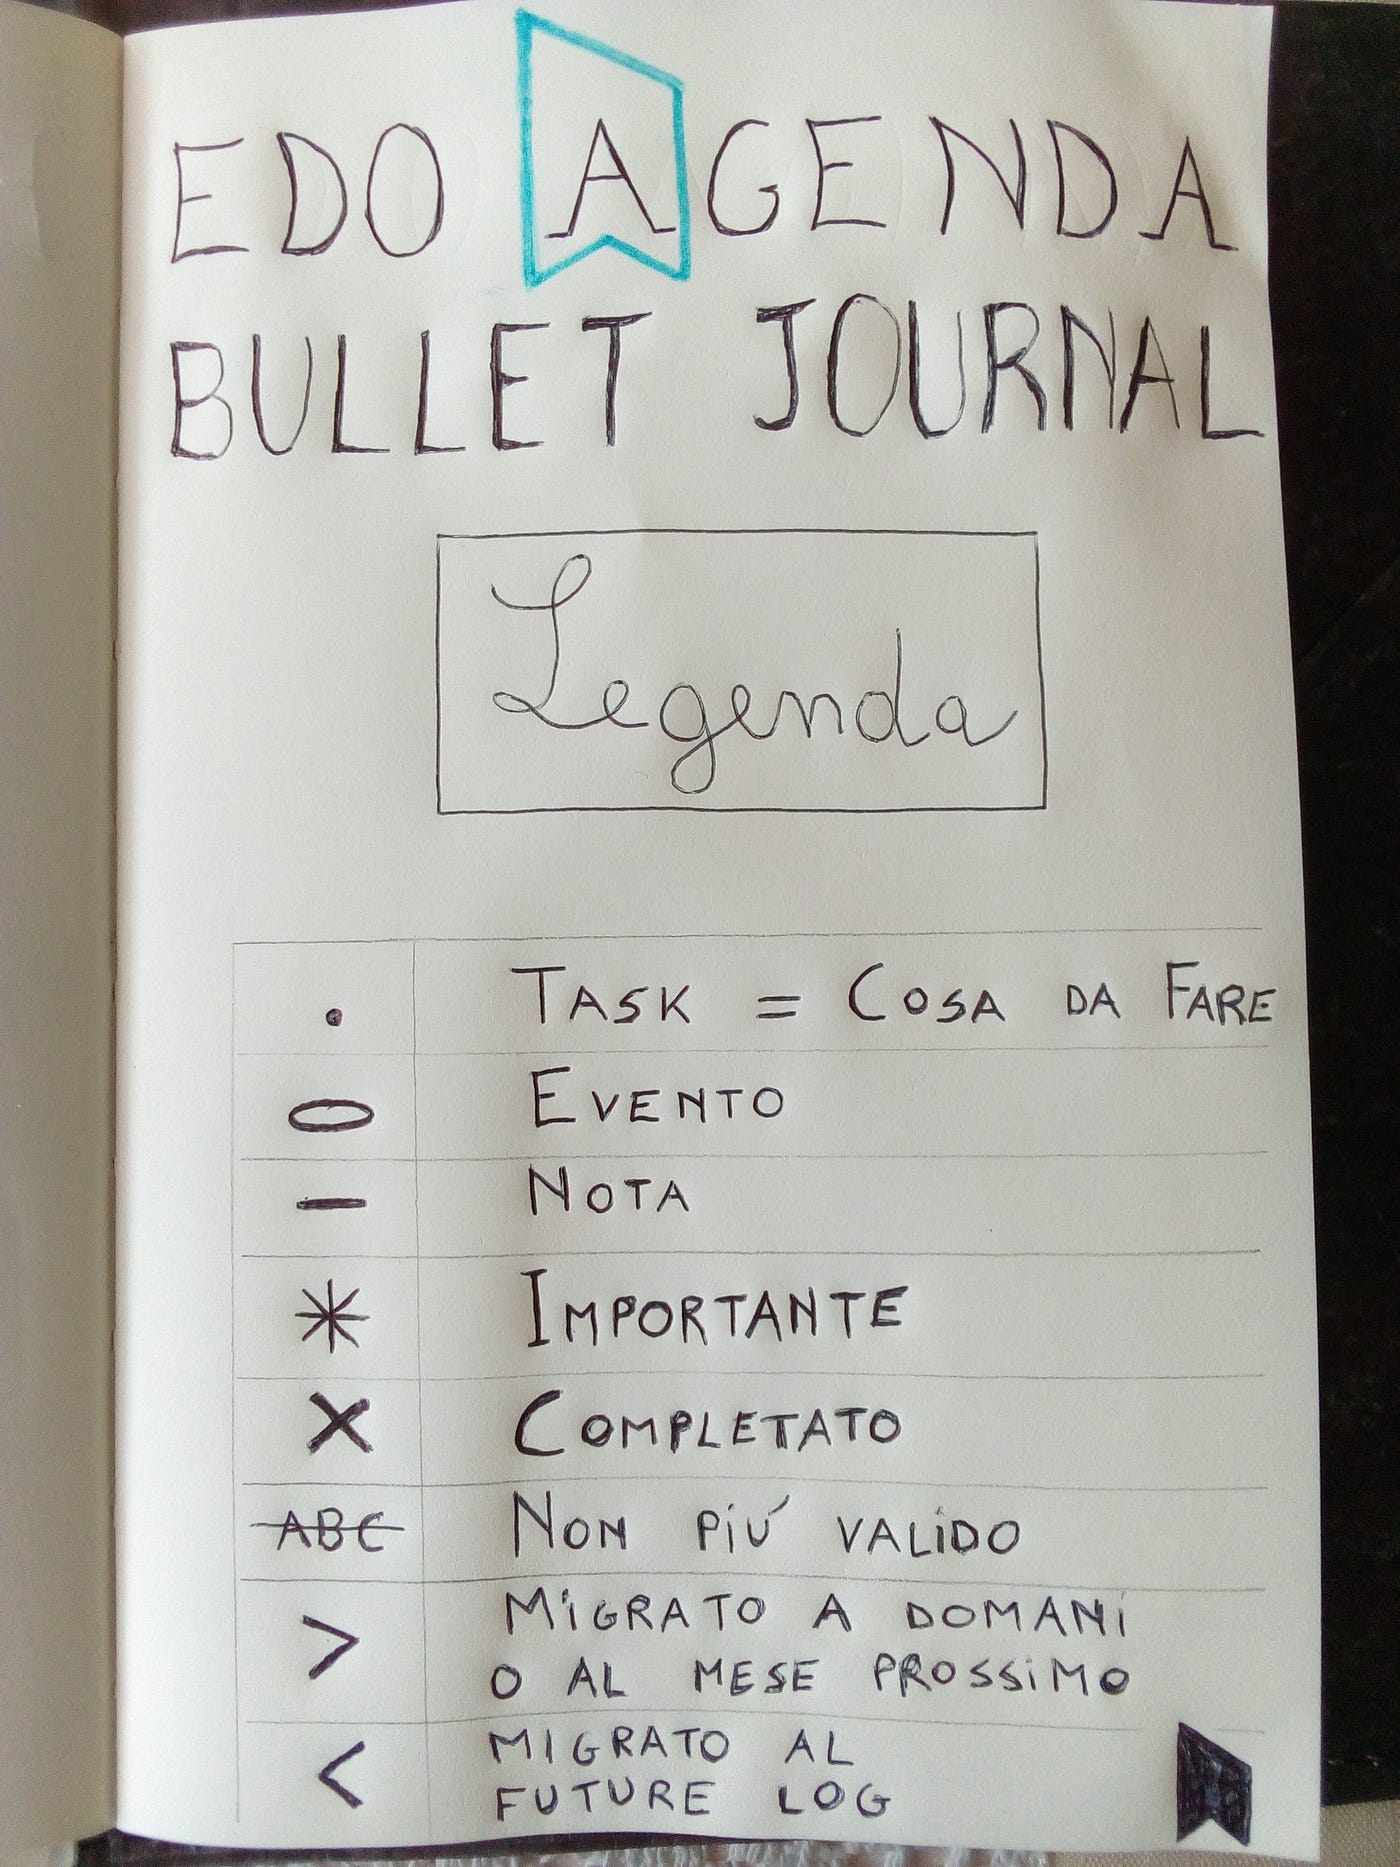 EDO AGENDA
BULLET JOURNAL
Legenda
• TASK = COSA DA FARE
O EVENTO
— NOTA
* IMPORTANTE
X COMPLETATO
ABC NON PIÚ VALIDO
> MIGRATO A DOMANI
O AL MESE PROSSIMO
< MIGRATO AL
FUTURE LOG